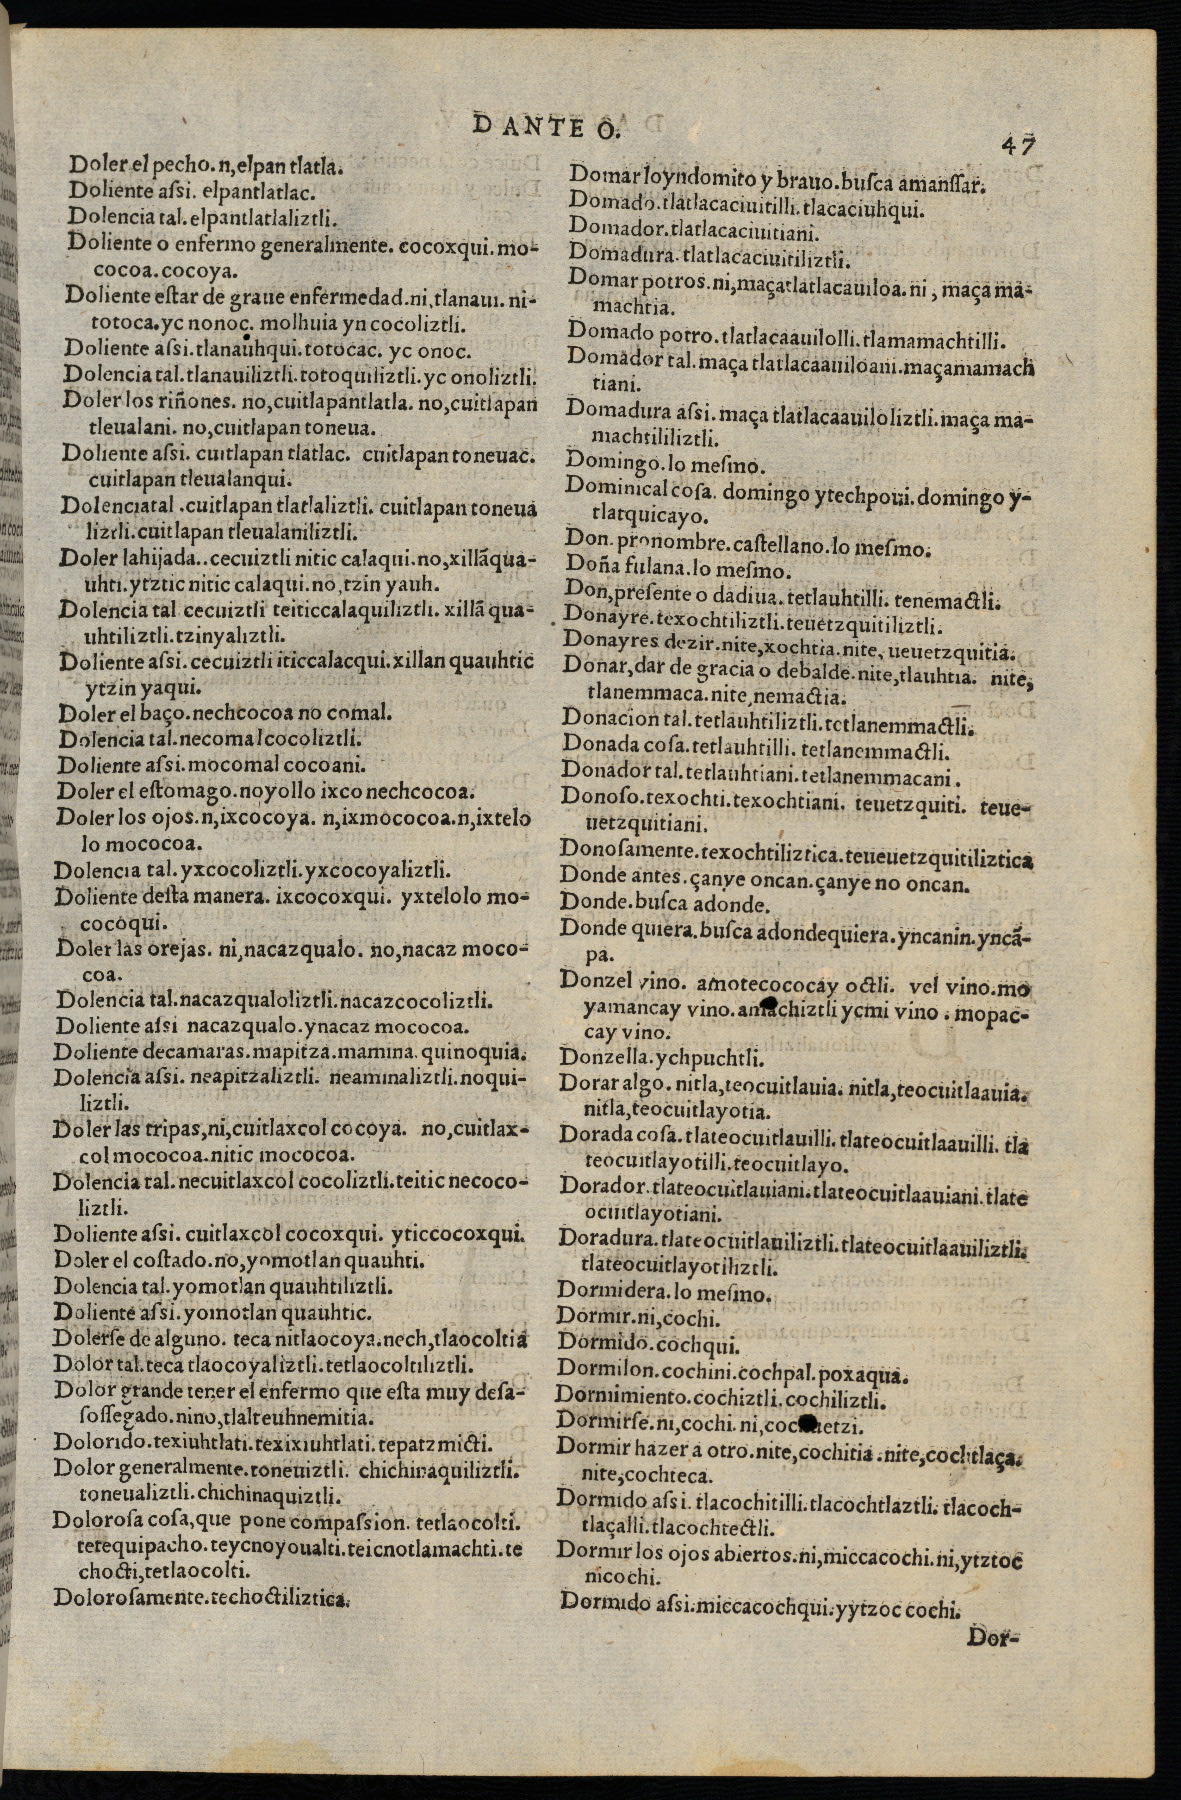 D ANTE O.
47
Doler el pecho. n, elpan tlatla.
Doliente aſsi. elpantlatlac.
Dolencia tal. elpantlatlaliztli.
Doliente o enfermo generalmente. cocoxqui. mo-
cocoa. cocoya.
Doliente eſtar de graue enfermedad. ni, tlanaui. ni-
totoca. yc nonoc. molhuia yn cocoliztli.
Doliente aſsi. tlanauhqui. totocac. yc onoc.
Dolencia tal. tlanauiliztli. totoquiliztli. yc onoliztli.
Doler los riñones. no, cuitlapantlatla. no, cuitlapan
tleualani. no, cuitlapan toneua.
Doliente aſsi. cuitlapan tlatlac. cuitlapan toneuac.
cuitlapan tleualanqui.
Dolencia tal. cuitlapan tlatlaliztli. cuitlapan toneua
liztli. cuitlapan tleualaniliztli.
Doler lahijada.. cecuiztli nitic calaqui. no, xillãqua-
uhti. ytztic nitic calaqui. no, tzin yauh.
Dolencia tal cecuiztli teiticcalaquiliztli. xillã qua-
uhtiliztli. tzinyaliztli.
Doliente aſsi. cecuiztli iticcalacqui. xillan quauhtic
ytzin yaqui.
Doler el baço. nechcocoa no comal.
Dolencia tal. necomal cocoliztli.
Doliente aſsi. mocomal cocoani.
Doler el eſtomago. noyollo ixco nechcocoa.
Doler los ojos. n, ixcocoya. n, ixmococoa. n, ixtelo
lo mococoa.
Dolencia tal. yxcocoliztli. yxcocoyaliztli.
Doliente deſta manera. ixcocoxqui. yxtelolo mo-
cocoqui.
Doler las orejas. ni, nacazqualo. no, nacaz moco-
coa.
Dolencia tal. nacazqualoliztli. nacazcocoliztli.
Doliente aſsi nacazqualo. ynacaz mococoa.
Doliente decamaras. mapitza. mamina. quinoquia.
Dolencia aſsi. neapitzaliztli. neaminaliztli. noqui-
liztli.
Doler las tripas, ni, cuitlaxcol cocoya. no, cuitlax-
col mococoa. nitic mococoa.
Dolencia tal. necuitlaxcol cocoliztli. teitic necoco-
liztli.
Doliente aſsi. cuitlaxcol cocoxqui. yticcocoxqui.
Doler el coſtado. no, yomotlan quauhti.
Dolencia tal. yomotlan quauhtiliztli.
Doliente aſsi. yomotlan quauhtic.
Dolerſe de alguno. teca nitlaocoya. nech, tlaocoltia
Dolor tal. teca tlaocoyaliztli. tetlaocoltiliztli.
Dolor grande tener el enfermo que eſta muy deſa-
ſoſſegado. nino, tlalteuhnemitia.
Dolorido. texiuhtlati. texixiuhtlati. tepatzmicti.
Dolor generalmente. toneuiztli. chichinaquiliztli.
toneualiztli. chichinaquiztli.
Doloroſa coſa, que pone compaſsion. tetlaocolti.
tetequipacho. teycnoyoualti. teicnotlamachti. te
chocti, tetlaocolti.
Doloroſamente. techoctiliztica.
Domar loyndomito y brauo. buſca amanſſar.
Domado. tlatlacaciuitilli. tlacaciuhqui.
Domador. tlatlacaciuitiani.
Domadura. tlatlacaciuitiliztli.
Domar potros. ni, maçatlatlacauiloa. ni, maça ma-
machtia.
Domado potro. tlatlacaauilolli. tlamamachtilli.
Domador tal. maça tlatlacaauiloani. maçamamach
tiani.
Domadura aſsi. maça tlatlacaauiloliztli. maça ma-
machtililiztli.
Domingo. lo meſmo.
Dominical coſa. domingo ytechpoui. domingo y-
tlatquicayo.
Don. pronombre. caſtellano. lo meſmo.
Doña fulana. lo meſmo.
Don, preſente o dadiua. tetlauhtilli. tenemactli.
Donayre. texochtiliztli. teuetzquitiliztli.
Donayres dezir. nite, xochtia. nite, ueuetzquitia.
Donar, dar de gracia o debalde. nite, tlauhtia. nite,
tlanemmaca. nite, nemactia.
Donacion tal. tetlauhtiliztli. tetlanemmactli.
Donada coſa. tetlauhtilli. tetlanemmactli.
Donador tal. tetlauhtiani. tetlanemmacani.
Donoſo. texochti. texochtiani. teuetzquiti. teue-
uetzquitiani.
Donoſamente. texochtiliztica. teueuetzquitiliztica
Donde antes. çanye oncan. çanye no oncan.
Donde. buſca adonde.
Donde quiera. buſca adondequiera. yncanin. yncã-
pa.
Donzel vino. amotecococay octli. vel vino. mo
yamancay vino. amachiztli ycmi vino. mopac-
cay vino.
Donzella. ychpuchtli.
Dorar algo. nitla, teocuitlauia. nitla, teocuitlaauia.
nitla, teocuitlayotia.
Dorada coſa. tlateocuitlauilli. tlateocuitlaauilli. tla
teocuitlayotilli. teocuitlayo.
Dorador. tlateocuitlauiani. tlateocuitlaauiani. tlate
ocuitlayotiani.
Doradura. tlateocuitlauiliztli. tlateocuitlaauiliztli.
tlateocuitlayotiliztli.
Dormidera. lo meſmo.
Dormir. ni, cochi.
Dormido. cochqui.
Dormilon. cochini. cochpal. poxaqua.
Dormimiento. cochiztli. cochiliztli.
Dormirſe. ni, cochi. ni, cochuetzi.
Dormir hazer a otro. nite, cochitia. nite, cochtlaça.
nite, cochteca.
Dormido aſsi. tlacochitilli. tlacochtlaztli. tlacoch-
tlaçalli. tlacochtectli.
Dormir los ojos abiertos. ni, miccacochi. ni, ytztoc
nicochi.
Dormido aſsi. miccacochqui. yytzoc cochi.
Dor-